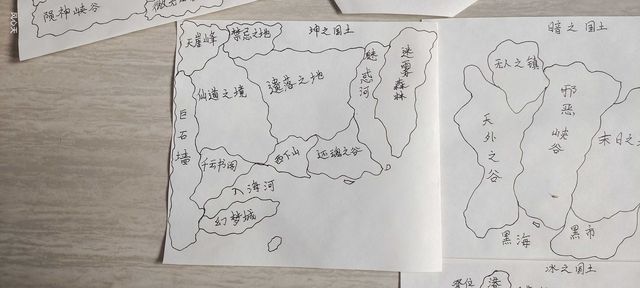 陨神峡谷
天崖峰
禁忌之地
坤之国土
仙道之境
遗落之地
魅惑河
迷雾森林
巨石墙
还魂之谷
入海河
幻梦城
暗之国土
无人之镇
天外之谷
邪恶峡谷
末日之
黑海
黑市
冰之国土